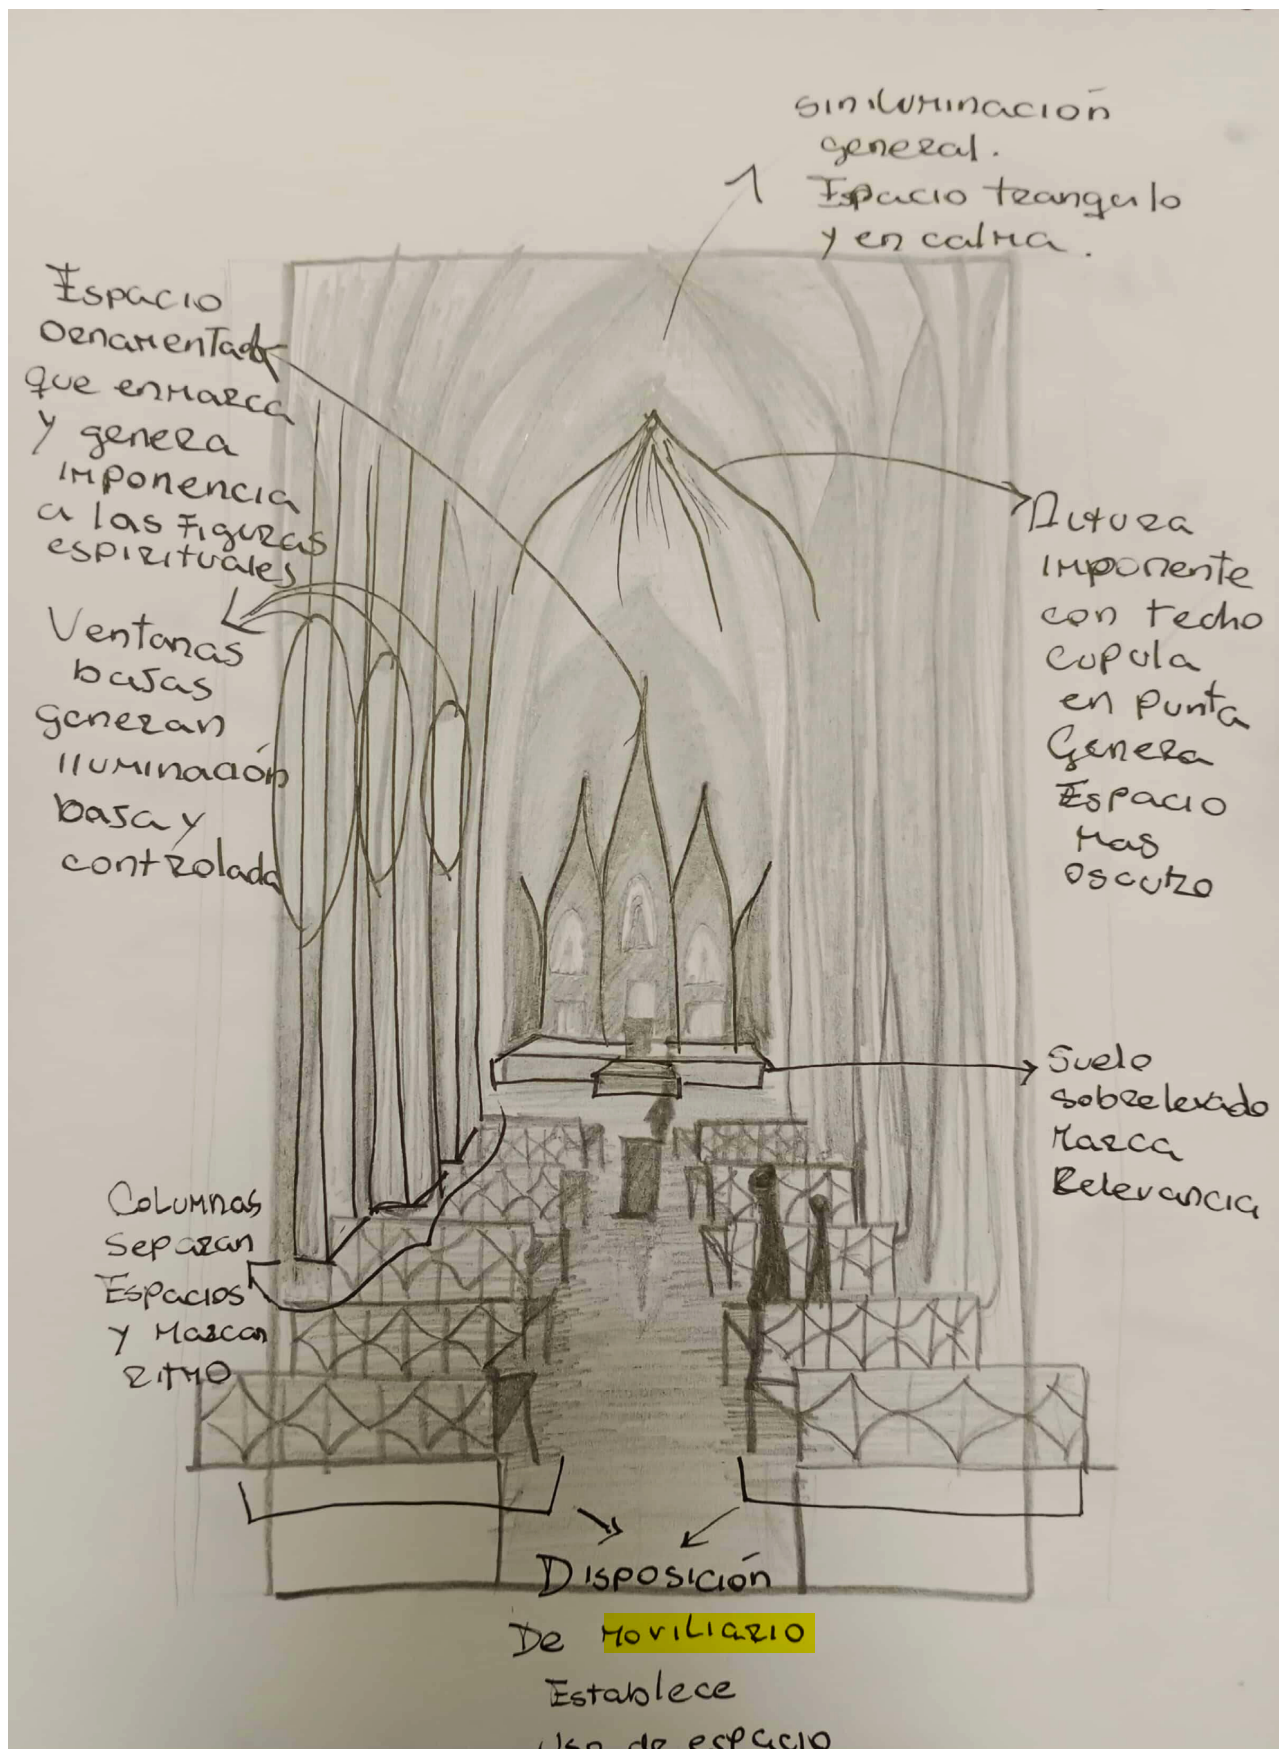 sin iluminación
general.
Espacio tranquilo
y en calma.
Espacio
ornamentado
que enmarca
y genera
imponencia
a las figuras
espirituales
Ventanas
bajas
generan
iluminación
baja y
controlada
Altura
imponente
con techo
cupula
en punta
Genera
Espacio
mas
oscuro
Suelo
sobrelevado
Marca
Relevancia
Columnas
Separan
Espacios
y Marcan
Ritmo
Disposición
De Moviliario
Establece
Uso de espacio